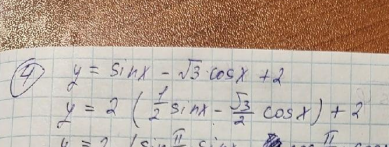 ④ y = sinx - √3 cosx + 2
y = 2 (1/2 sinx - √3/2 cosx) + 2
y = 2 (sin π/